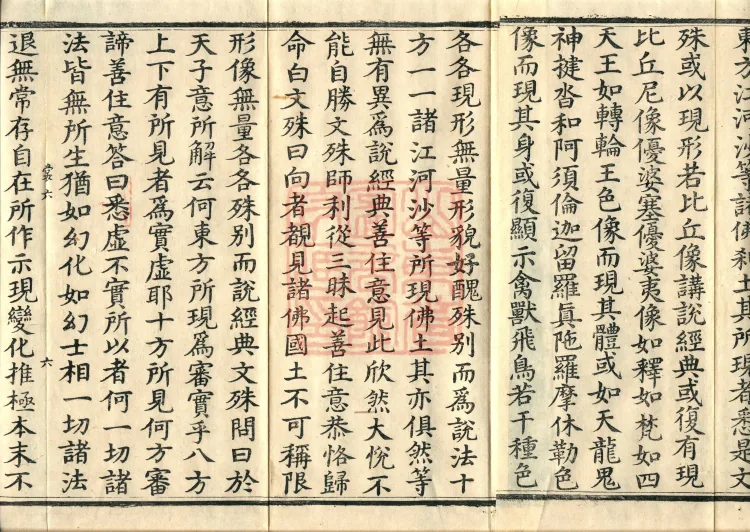 東方江河沙等諸佛刹土其所現者悉是文
殊或以現形若比丘像講說經典或復有現
比丘尼像優婆塞優婆夷像如釋如梵如四
天王如轉輪王色像而現其體或如天龍鬼
神揵沓和阿須倫迦留羅眞陁羅摩休勒色
像而現其身或復顯示禽獸飛鳥若干種色
各各現形無量形貌好醜殊別而爲說法十
方一一諸江河沙等所現佛土其亦俱然等
無有異爲說經典善住意見此欣然大悅不
能自勝文殊師利從三昧起善住意恭恪歸
命白文殊曰向者覩見諸佛國土不可稱限
形像無量各各殊別而說經典文殊問曰於
天子意所解云何東方所現爲審實乎八方
上下有所見者爲實虛耶十方所見何方審
諦善住意答曰悉虛不實所以者何一切諸
法皆無所生猶如幻化如幻士相一切諸法
六
退無常存自在所作示現變化推極本末不